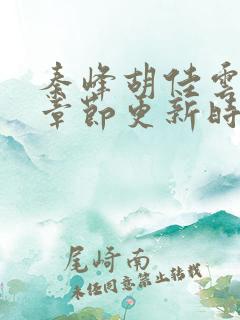 秦峰胡佳雲
章節更新時
尾崎南
未经同意禁止转载